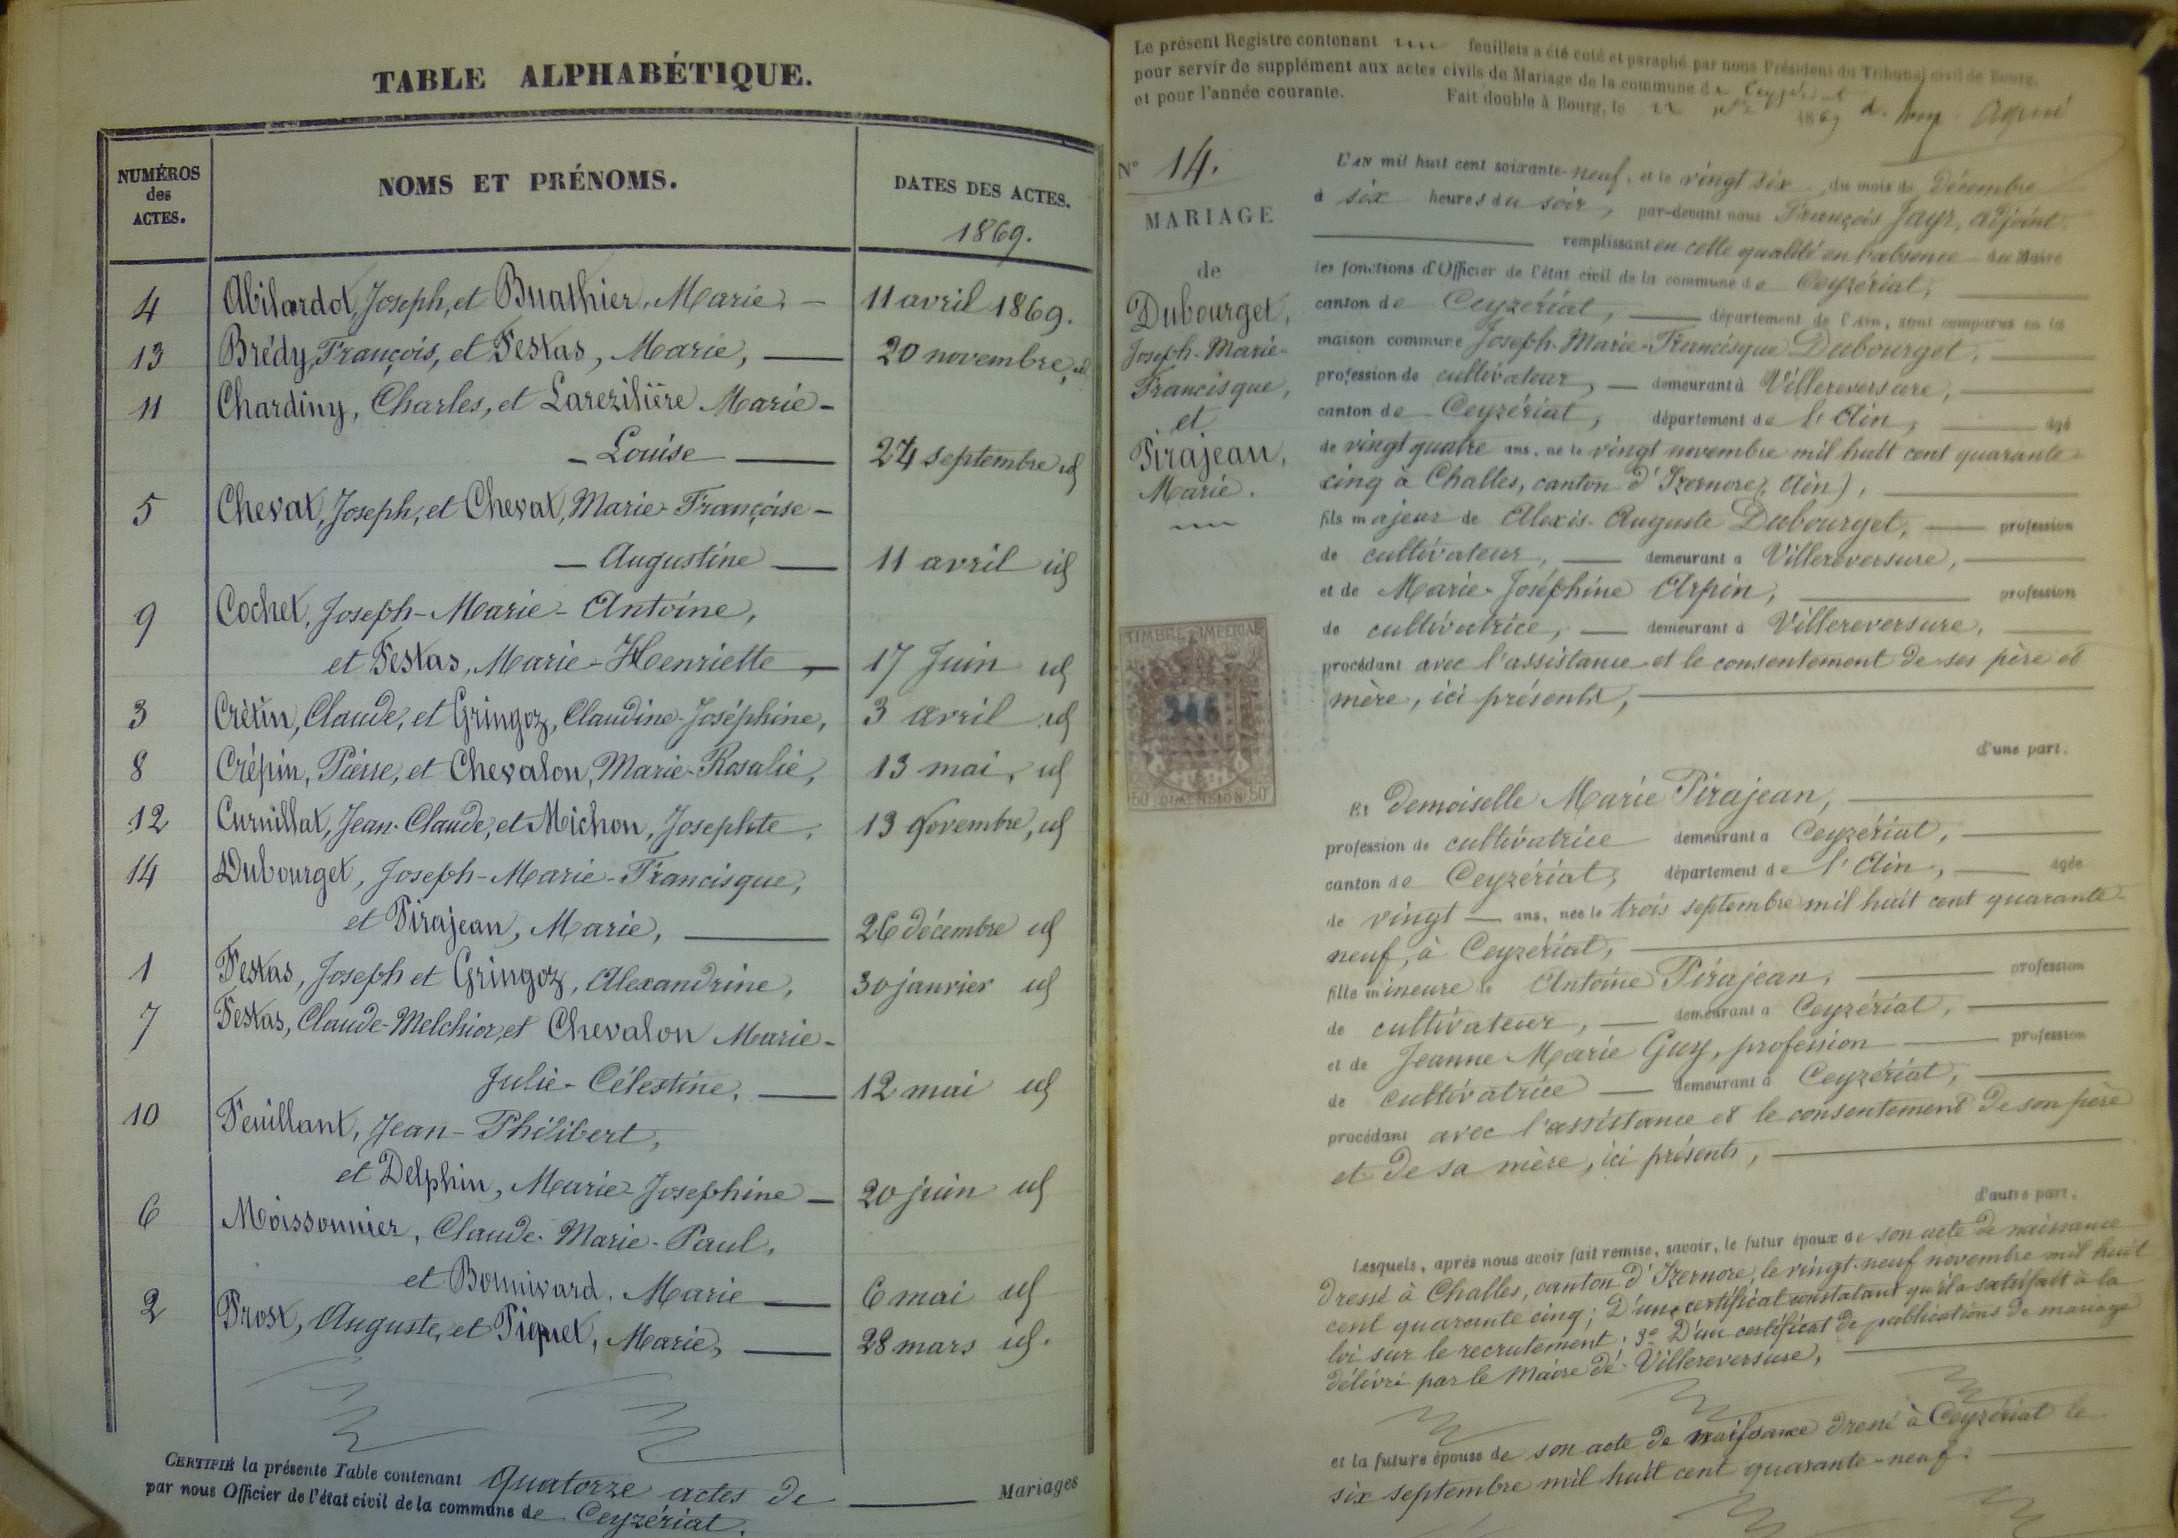 TABLE ALPHABÉTIQUE.
NUMÉROS
des
ACTES.
NOMS ET PRÉNOMS.
DATES DES ACTES.
1869.
4 Abilardot, Joseph, et Buathier, Marie, — 11 avril 1869.
13 Brédy, François, et Festas, Marie, — 20 novembre, id
11 Chardiny, Charles, et Larezilière Marie-
- Louise — 24 septembre id
5 Chevat, Joseph, et Chevat, Marie-Françoise-
- Augustine — 11 avril id
9 Cochet, Joseph-Marie-Antoine,
et Festas, Marie-Henriette — 17 Juin id
3 Crétin, Claude, et Gringoz, Claudine-Joséphine, 3 avril id
8 Crépin, Pierre, et Chevalon, Marie-Rosalie, 13 mai, id
12 Curnillat, Jean-Claude, et Michon, Josephte, 13 Novembre, id
14 Dubourget, Joseph-Marie-Francisque,
et Pirajean, Marie, — 26 décembre id
1 Festas, Joseph et Gringoz, Alexandrine, 30 janvier id
7 Festas, Claude-Melchior, et Chevalon Marie-
Julie-Célestine, — 12 mai id
10 Feuillant, Jean-Philibert,
et Delphin, Marie-Josephine — 20 juin id
6 Moissonnier, Claude-Marie-Paul,
et Bonnivard, Marie — 6 mai id
2 Prost, Auguste, et Piquet, Marie, — 28 mars id.
CERTIFIÉ la présente Table contenant quatorze actes de — Mariages
par nous Officier de l'état civil de la commune de Ceyzériat.
Le présent Registre contenant feuillets a été coté et paraphé par nous Président du Tribunal civil de Bourg,
pour servir de supplément aux actes civils de Mariage de la commune de Ceyzériat
et pour l'année courante. Fait double à Bourg, le 1869
N° 14.
MARIAGE
de
Dubourget,
Joseph-Marie-
Francisque,
et
Pirajean,
Marie.
TIMBRE IMPÉRIAL
346
50 DIMENSION 50
L'AN mil huit cent soixante-neuf, et le vingt six du mois de Décembre
à six heures du soir, par-devant nous François Jayr, adjoint
remplissant en cette qualité en l'absence du Maire
les fonctions d'Officier de l'état civil de la commune de Ceyzériat,
canton de Ceyzériat, — département de l'Ain, sont comparus en la
maison commune Joseph-Marie-Francisque Dubourget,
profession de cultivateur, — demeurant à Villereversure,
canton de Ceyzériat, département de l'Ain, — âgé
de vingt quatre ans, né le vingt novembre mil huit cent quarante-
cinq à Challes, canton d'Izernore, (Ain),
fils majeur de Alexis-Auguste Dubourget, — profession
de cultivateur, — demeurant à Villereversure,
et de Marie-Joséphine Arpin, — profession
de cultivatrice, — demeurant à Villereversure,
procédant avec l'assistance et le consentement de ses père et
mère, ici présents,
d'une part.
Et Demoiselle Marie Pirajean,
profession de cultivatrice demeurant à Ceyzériat,
canton de Ceyzériat, département de l'Ain, — âgée
de vingt — ans, née le trois septembre mil huit cent quarante-
neuf, à Ceyzériat,
fille mineure de Antoine Pirajean, — profession
de cultivateur, — demeurant à Ceyzériat,
et de Jeanne Marie Guy, profession — profession
de cultivatrice — demeurant à Ceyzériat,
procédant avec l'assistance et le consentement de son père
et de sa mère, ici présents,
d'autre part.
Lesquels, après nous avoir fait remise, savoir, le futur époux de son acte de naissance
dressé à Challes, canton d'Izernore, le vingt-neuf novembre mil huit
cent quarante cinq; D'un certificat constatant qu'il a satisfait à la
loi sur le recrutement; 3° D'un certificat de publications de mariage
délivré par le Maire de Villereversure,
et la future épouse de son acte de naissance dressé à Ceyzériat le
six septembre mil huit cent quarante-neuf.